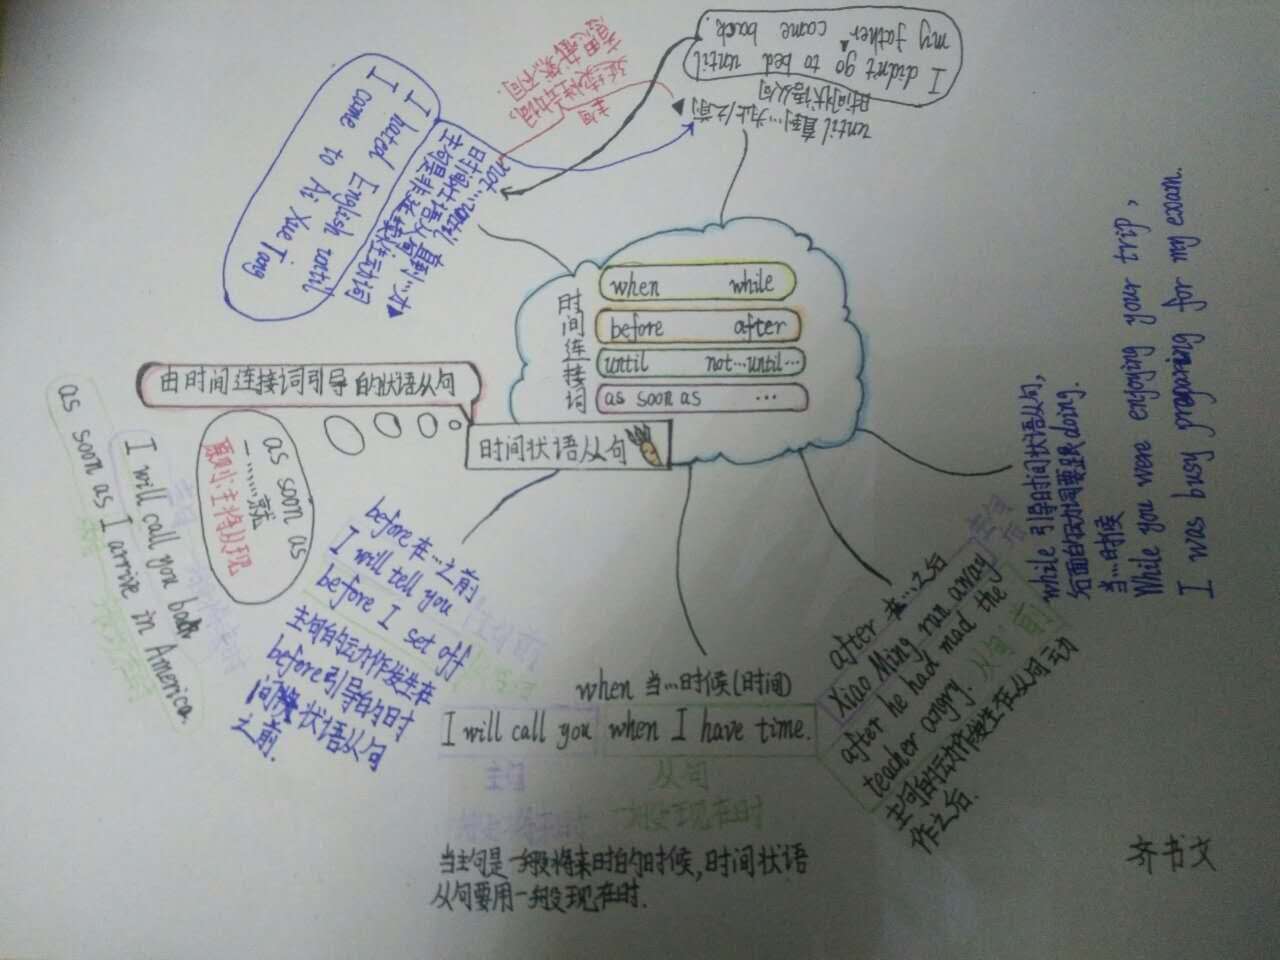 时间连接词
when while
before after
until not…until…
as soon as …
时间状语从句
由时间连接词引导的状语从句
until 直到…为止/之前
时间状语从句
I didn't go to bed until
my father came back.
主句
延续性动词,
not…until 直到…才
时间状语从句
主句是非延续性动词
I hated English until
I came to Ai Xue Tang
as soon as
一……就
原则:主将从现
I will call you back
as soon as I arrive in America.
before 在…之前
I will tell you
before I set off
主句的动作发生在
before引导的时
间状语从句
之前.
when 当…时候(时间)
I will call you when I have time.
主句 从句
一般将来时 一般现在时
当主句是一般将来时的时候,时间状语
从句要用一般现在时.
after 在…之后
Xiao Ming run away
after he had mad the
teacher angry. 从句"前"
主句的动作发生在从句动
作之后.
while 引导时间状语从句,
后面的动词要跟doing.
当…时候
While you were enjoying your trip,
I was busy preparing for my exam.
齐书文